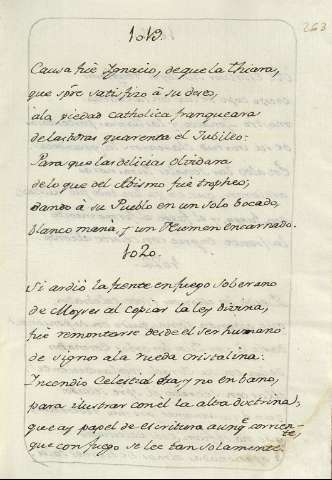 263
1019.
Causa fue Ignacio, de que la thiara,
que spre. satisfizo â su deseo,
â la piedad catholica franqueara
de las horas quarenta el Jubileo:
Para que las delicias olvidara
de lo que del Abismo fue tropheo,
dando â su Pueblo en un solo bocado,
blanco mana, y un Numen encarnado.
1020.
Si ardiò la frente en fuego soberano
de Moyses al copiar la ley divina,
fue remontarse desde el ser humano
de signos a la rueda cristalina:
Incendio Celestial era, y no en bano,
para ilustrar con èl la alta doctrina,
que ay papel de escritura aunq.e corriente,
que con fuego se lee tan solamente.